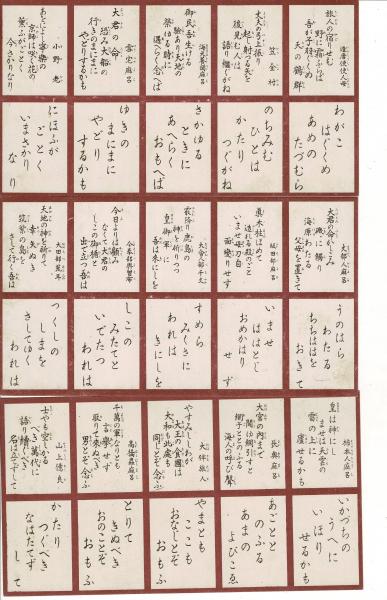 遣唐使使人母
旅人の宿りせむ
野に霜ふらば
吾が子羽ぐくめ
天の鶴群
笠金村
大夫の弓上振り
起し射つる矢を
後見む人は
語り継ぐがね
海犬養岡麻呂
御民吾生ける
驗あり天地の
榮ゆる時に
遇へらく念へば
雪宅麻呂
大君の命
恐み大船の
行きのまにまに
やどりするかも
小野老
あをによし寧樂の
京師は咲く花の
薫ふがごとく
今さかりなり
わがこ
はぐくめ
あめの
たづむら
のちみむ
ひとは
かたり
つぐがね
さかゆる
ときに
あへらく
おもへば
ゆきの
まにまに
やどり
するかも
にほふが
ごとく
いまさかり
なり
丈部人麻呂
大君の命かしこみ
磯に觸り
海原わたる
父母を置きて
坂田部麻呂
眞木柱ほめて
造れる殿のごと
いませ母刀自
面變りせず
大舎人部千文
霰降り鹿島の
神を祈りつつ
皇御軍に
吾は来にしを
今奉部與曾布
今日よりは顧み
なくて大君の
しこの御楯と
出で立つ吾は
大田部荒耳
天地の神を祈りて
幸矢ぬき
筑紫の島を
さして行く吾は
うのはら
わたる
ちちははを
おきて
いませ
ははとじ
おめがはり
せず
すめら
みくさに
われは
きにしを
しこの
みたてと
いでたつ
われは
つくしの
しまを
さしてゆく
われは
柿本人麻呂
皇は神に
ませば天雲の
雷の上に
廬せるかも
長奥麻呂
大宮の内まで
聞ゆ網引すと
網子ととのふる
海人の呼び聲
大伴旅人
やすみししわが
大王の食國は
大和も此處も
同じとぞ念ふ
高橋蟲麻呂
千萬の軍なりとも
言擧せず
取りて來ぬべき
男とぞ念ふ
山上憶良
士やも空しかる
べき萬代に
語り續ぐべき
名は立てずして
いかづちの
うへに
いほり
せるかも
あごとと
のふる
あまの
よびこゑ
やまとも
ここも
おなじとぞ
おもふ
とりて
きぬべき
をのことぞ
おもふ
かたり
つぐべき
なはたてず
して